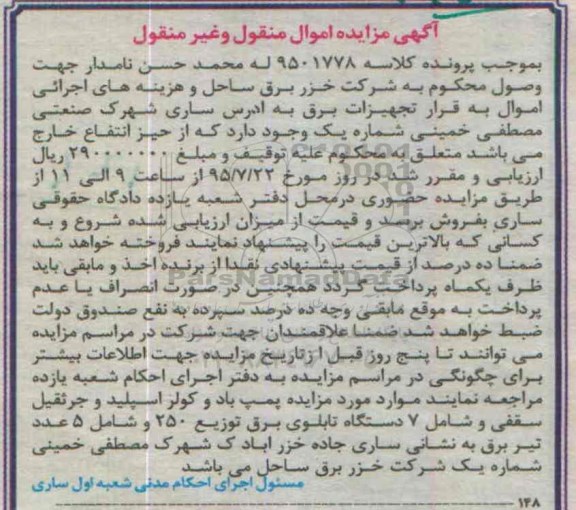 آگهی مزایده اموال منقول وغیر منقول
بموجب پرونده کلاسه ۹۵۰۱۷۷۸ له محمد حسن نامدار جهت
وصول محکوم به شرکت خزر برق ساحل و هزینه های اجرائی
اموال به قرار تجهیزات برق به ادرس ساری شهرک صنعتی
مصطفی خمینی شماره یک وجود دارد که از حیز انتفاع خارج
می باشد متعلق به محکوم علیه توقیف و مبلغ ۲۹۰۰۰۰۰۰۰ ریال
ارزیابی و مقرر شد در روز مورخ ۹۵/۷/۲۲ از ساعت ۹ الی ۱۱ از
طریق مزایده حضوری درمحل دفتر شعبه یازده دادگاه حقوقی
ساری بفروش برسد و قیمت از میزان ارزیابی شده شروع و به
کسانی که بالاترین قیمت را پیشنهاد نمایند فروخته خواهد شد
ضمنا ده درصد از قیمت پیشنهادی نقدا از برنده اخذ و مابقی باید
ظرف یکماه پرداخت گردد همچنین در صورت انصراف یا عدم
پرداخت به موقع مابقی وجه ده درصد سپرده به نفع صندوق دولت
ضبط خواهد شد ضمنا علاقمندان جهت شرکت در مراسم مزایده
می توانند تا پنج روز قبل ازتاریخ مزایده جهت اطلاعات بیشتر
برای چگونگی در مراسم مزایده به دفتر اجرای احکام شعبه یازده
مراجعه نمایند موارد مورد مزایده پمپ باد و کولر اسپلید و جرثقیل
سقفی و شامل ۷ دستگاه تابلوی برق توزیع ۲۵۰ و شامل ۵ عدد
تیر برق به نشانی ساری جاده خزر اباد ک شهرک مصطفی خمینی
شماره یک شرکت خزر برق ساحل می باشد
مسئول اجرای احکام مدنی شعبه اول ساری
۱۴۸
ParsNamadData